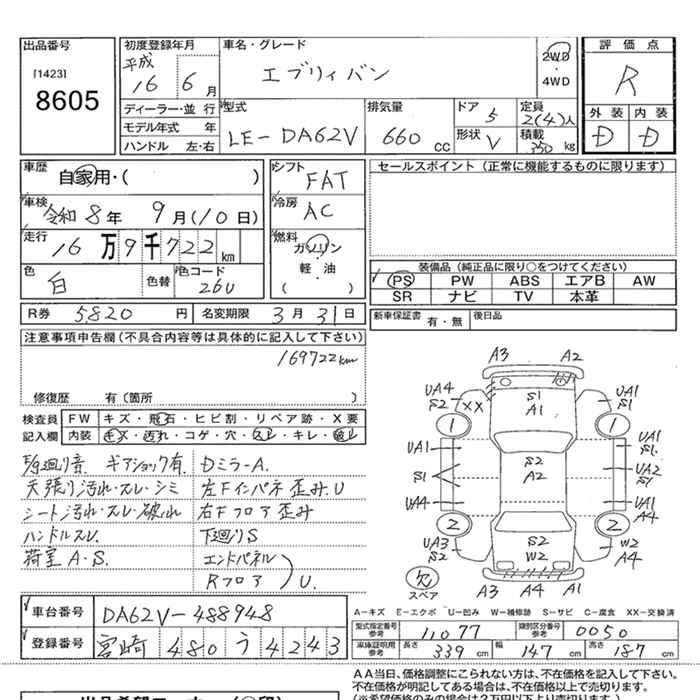 出品番号
[1423]
8605
初度登録年月
平成
16 6月
ディーラー・並行
モデル年式 年
ハンドル 左・右
車名・グレード
エブリィバン
2WD
・
4WD
型式
LE-DA62V
排気量
660 cc
ドア 5
形状 V
定員
2(4)人
積載
350 kg
評価点
R
外装 内装
D D
車歴
自家用・( )
車検
令和8年 9月(10日)
走行
16万9千722km
色
白
色替
色コード
26U
シフト
FAT
冷房
AC
燃料
ガソリン
軽・油
( )
セールスポイント(正常に機能するものに限ります)
装備品(純正品に限り○をつけてください)
PS PW ABS エアB AW
SR ナビ TV 本革
R券 5,820 円 名変期限 3月31日
新車保証書 有・無 後日品
注意事項申告欄(不具合内容等は具体的に記入して下さい)
169722km
修復歴 有(箇所 )
検査員
記入欄
FW キズ・飛石・ヒビ割・リペア跡・X要
内装 キズ・汚れ・コゲ・穴・スレ・キレ・破レ
ギアショック有
天張り汚れ・スレ・シミ
シート汚れ・スレ・破れ
ハンドルスレ
荷室A・S.
Dミラー A.
左Fインパネ歪み.U
右Fフロア歪み
下廻りS
エンドパネル
Rフロア U.
A3 A2
UA4
S2
XX
S1
A1
UA1
S1
1 1
UA1
S1
UA4
S2
A2
UA1
S1
UA2
S1
UA1
A4
2 2
UA3
S2
S2
W2
W2
A4
A3 A4 A1
欠
スペア
A−キズ E−エクボ U−凹み W−補修跡 S−サビ C−腐食 XX−交換済
車台番号 DA62V-488948
登録番号 宮崎 480 う 4243
型式指定番号
参考
11077
類別区分番号
参考
0050
車庫証明用
参考
長さ 339 cm 幅 147 cm 高さ 187 cm
AA当日、価格調整にこられない方は、不在価格を記入して下さい。
不在価格が明記してある場合は、不在価格以上で売切ります。